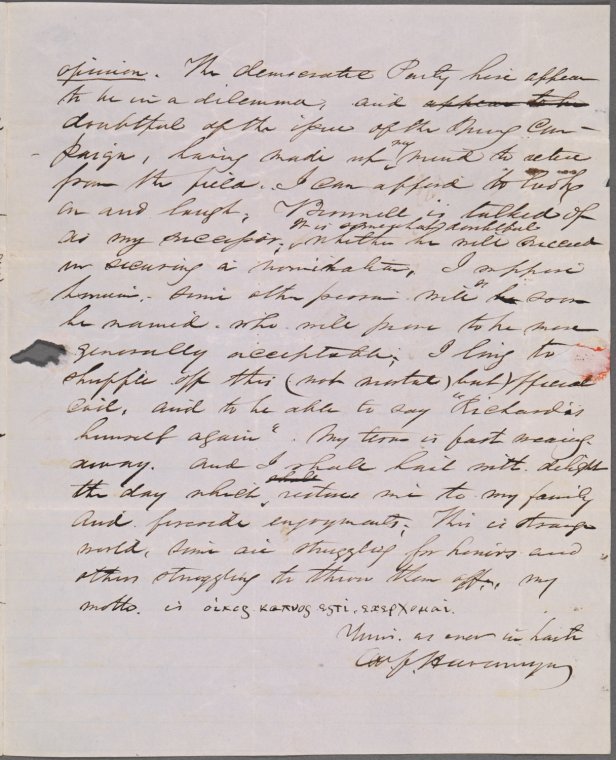 opinion. The democratic Party here appear
to be in a dilemma, and appear to be
doubtful of the issue of the Spring Cam-
paign, having made up my mind to retire
from the field. I can afford to look
on and laugh, is talked of
it is somewhat doubtful
as my successor, whether he will succeed
in securing a nomination, I suppose
some other person will be soon
be named. who will prove to be more
generally acceptable, I long to
shuffle off this (not mortal) but official
coil, and to be able to say "Richard is
himself again". My term is fast wearing
away. and I shall hail with delight
shall
the day which restore me to my family
and fireside enjoyments, This is strange
world, some are struggling for honors and
others struggling to throw them off, my
motto. is οικος καπνος εστι. επερχομαι.
Yours. as ever in haste